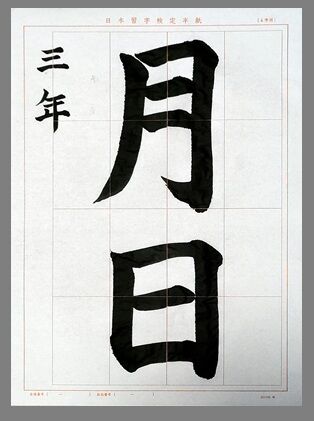 日本習字検定半紙
月日
三年